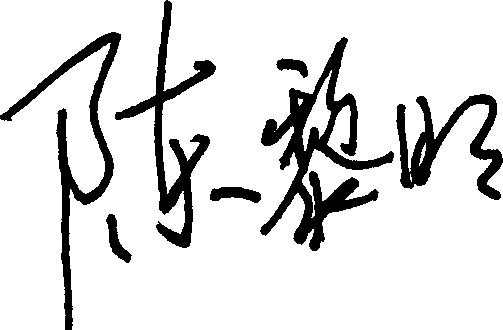 陈黎明